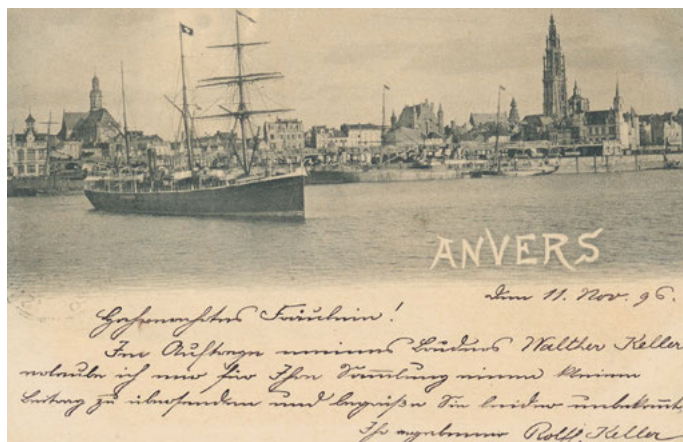 ANVERS
Den 11. Nov. 96.
Geehrtestes Fräulein!
Im Auftrage meines Bruders Walther Keller
erlaube ich mir für Ihre Sammlung einen kleinen
Beitrag zu übersenden und begrüße Sie leider unbekannt,
Ihr ergebener Rolf Keller